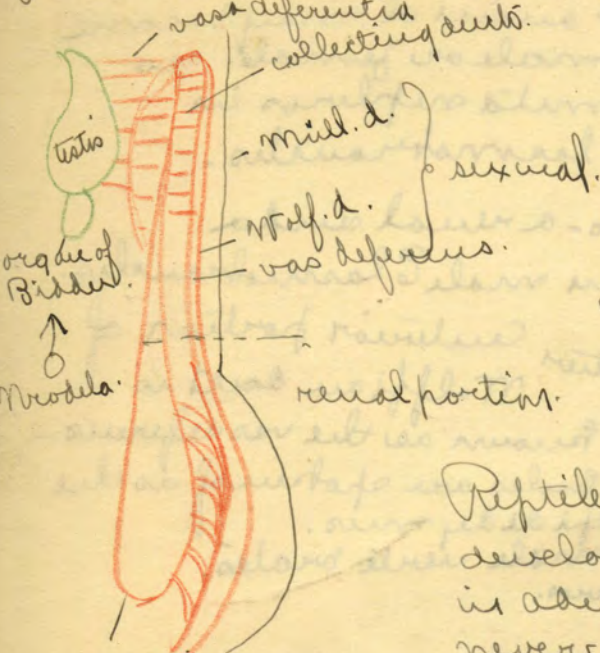 vasa deferentia
collecting ducts.
testis
Müll. d.
sexual.
Wolf. d.
vas deferens.
organ of
Bidder.
♂
Urodela.
renal portion.
Reptile
develo
is abe
never